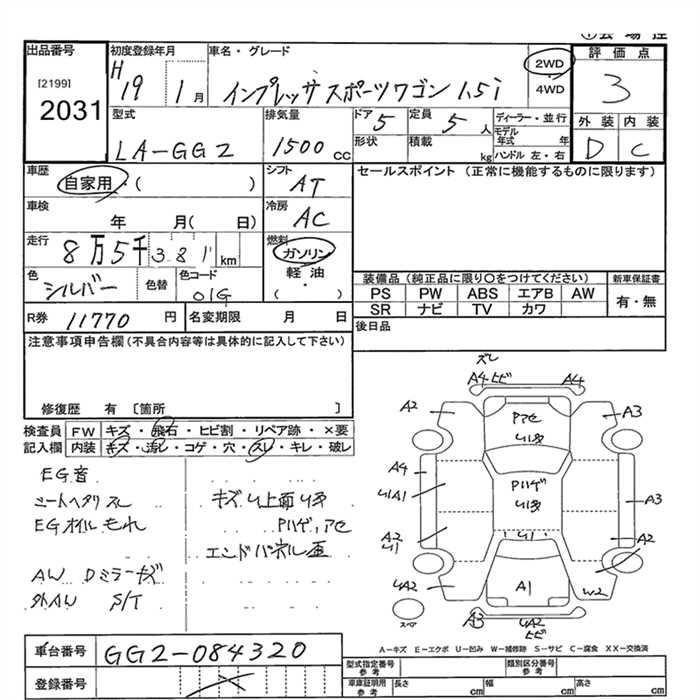 ① 会場控
出品番号 初度登録年月 車名・グレード 評価点
[2199]
2031
H19 1月 インプレッサスポーツワゴン 1.5i 2WD 4WD 3
型式 排気量 ドア 定員 ディーラー・並行 外装 内装
LA-GG2 1500cc 5 5人 モデル年式 年 D C
形状 積載 kg ハンドル 左・右
車歴 シフト セールスポイント (正常に機能するものに限ります)
自家用・( ) AT
車検 冷房
年 月( 日) AC
走行 燃料
8万5千381km ガソリン
軽油
・
( )
色 色替 色コード
シルバー 01G
装備品 (純正品に限り○をつけてください) 新車保証書
PS PW ABS エアB AW 有・無
SR ナビ TV カワ
R券 11770円 名変期限 月 日
後日品
注意事項申告欄 (不具合内容等は具体的に記入して下さい)
修復歴 有 〔箇所 〕
検査員 FW キズ・飛石・ヒビ割・リペア跡・×要
記入欄 内装 キズ・汚レ・コゲ・穴・スレ・キレ・破レ
EG音
シートヘタリ スレ キズ U 上面 U多
EGオイルもれ Pハゲ,アセ
エンドパネル歪
AW Dミラーキズ
外AW S/T
ズレ
A4 ヒビ A4
A2 Pアセ U多 A3
A4 Pハゲ U多
U1A1 A3
A2 U1 U1 A2
UA2 A1 W2
スペア A3 UA2 ヒビ
A-キズ E-エクボ U-凹み W-補修跡 S-サビ C-腐食 XX-交換済
車台番号 GG2-084320
型式指定番号 参考 類別区分番号 参考
登録番号
車庫証明用 参考 長さ cm 幅 cm 高さ cm